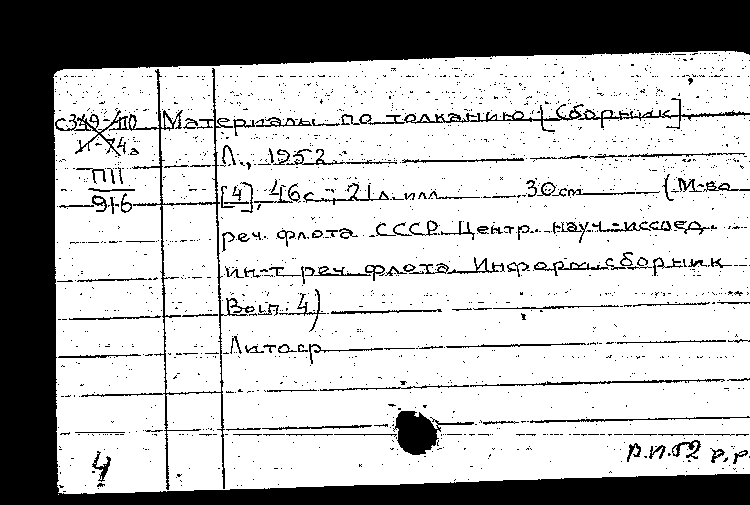 С349-410 Материалы по толканию. [Сборник].
И-74а
Л., 1952
П11
9/6
[4], 46 с.; 21 л. илл. 30 cm (М-во
реч. флота СССР. Центр. науч.-исслед.
ин-т реч. флота. Информ. сборник
Вып. 4)
Литогр.
4
р.п.52 р.р.